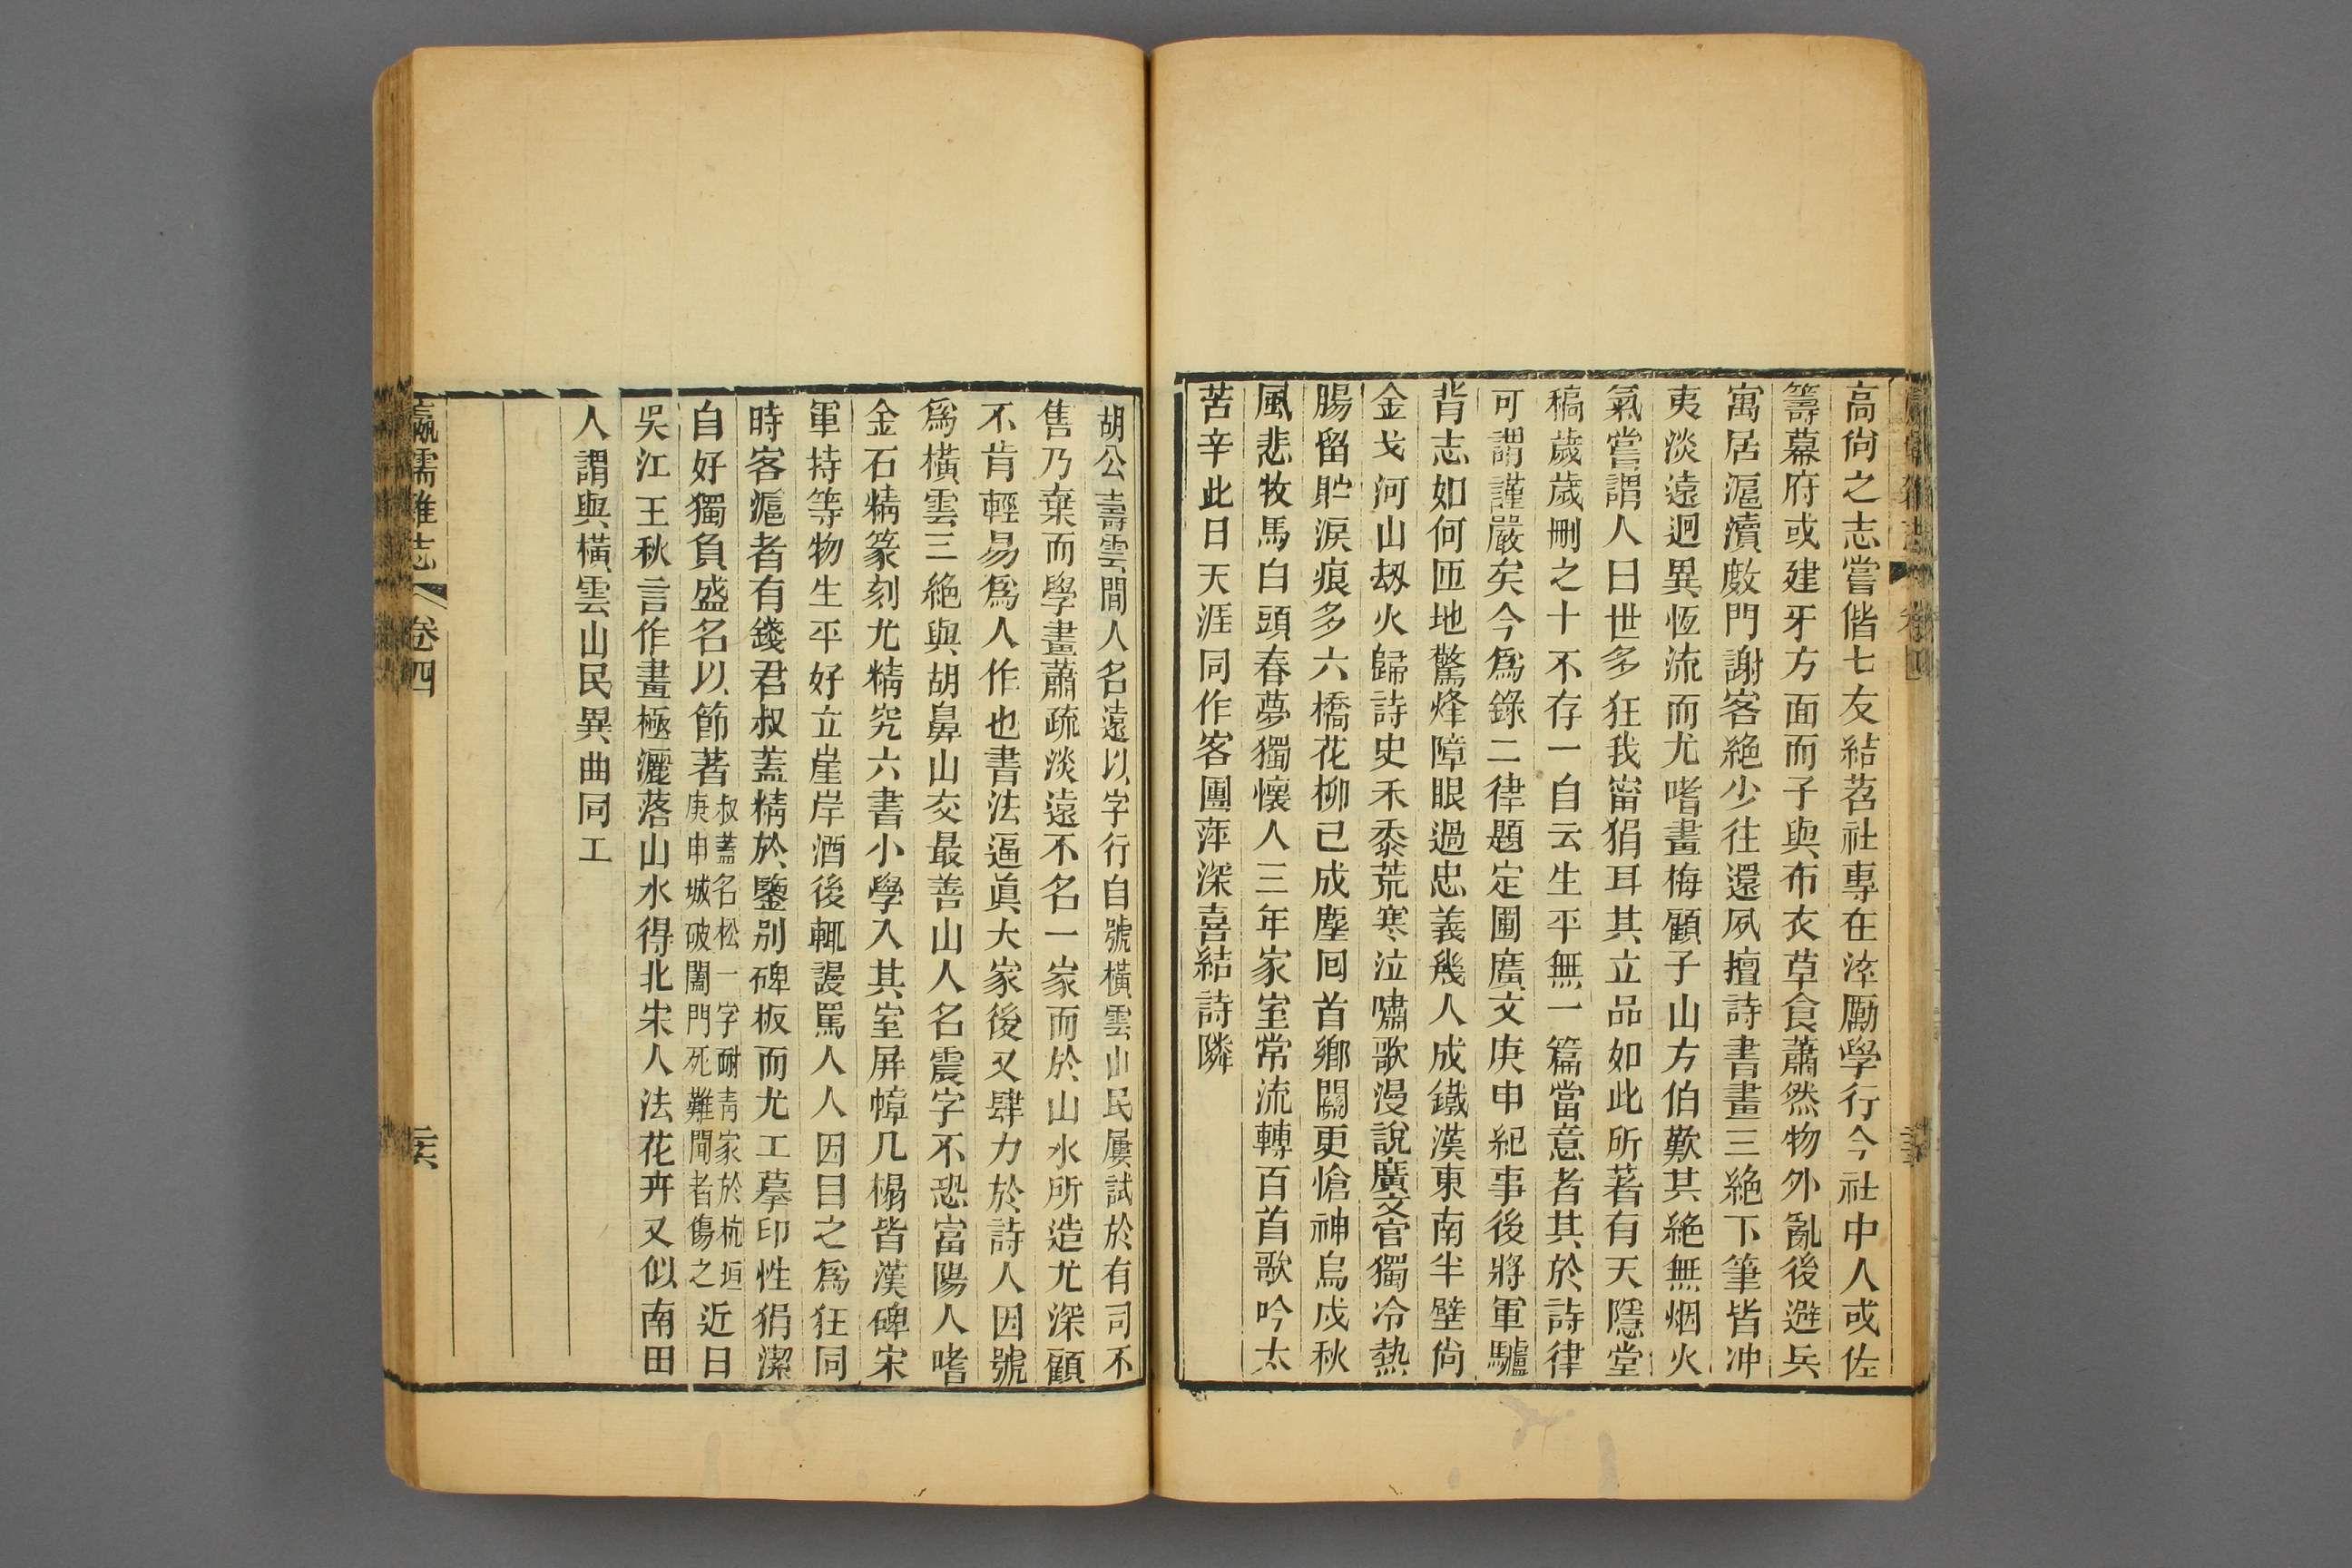 高尚之志嘗偕七友結苕社專在淬厲學行今社中人或佐
籌幕府或建牙方面而子與布衣草食蕭然物外亂後避兵
寓居滬瀆敵門謝客絕少往還夙擅詩書畫三絕下筆皆冲
夷淡遠迥異恆流而尤嗜畫梅顧子山方伯歎其絕無烟火
氣嘗謂人曰世多狂我甯狷耳其立品如此所著有天隱堂
稿歲歲刪之十不存一自云生平無一篇當意者其於詩律
可謂謹嚴矣今爲錄二律題定圃廣文庚申紀事後將軍驢
背志如何匝地驚烽障眼過忠義幾人成鐵漢東南半壁尙
金戈河山刼火歸詩史禾黍荒寒泣嘯歌漫說廣文官獨冷熱
腸留貯淚痕多六橋花柳已成塵回首鄉關更愴神烏戍秋
風悲牧馬白頭春夢獨懷人三年家室常流轉百首歌吟太
苦辛此日天涯同作客團萍深喜結詩隣
胡公壽雲間人名遠以字行自號橫雲山民屢試於有司不
售乃棄而學畫蕭疏淡遠不名一家而於山水所造尤深顧
不肯輕易爲人作也書法逼眞大家後又肆力於詩人因號
爲橫雲三絕與胡鼻山交最善山人名震字不恐富陽人嗜
金石精篆刻尤精究六書小學入其室屏幛几榻皆漢碑宋
軍持等物生平好立崖岸酒後輒謾罵人人因目之爲狂同
時客滬者有錢君叔蓋精於鑒别碑板而尤工摹印性狷潔
自好獨負盛名以節著叔蓋名松一字耐靑家於杭垣庚申城破闔門死難聞者傷之近日
吳江王秋言作畫極灑落山水得北宋人法花卉又似南田
人謂與橫雲山民異曲同工
瀛壖雜志 卷四 二六